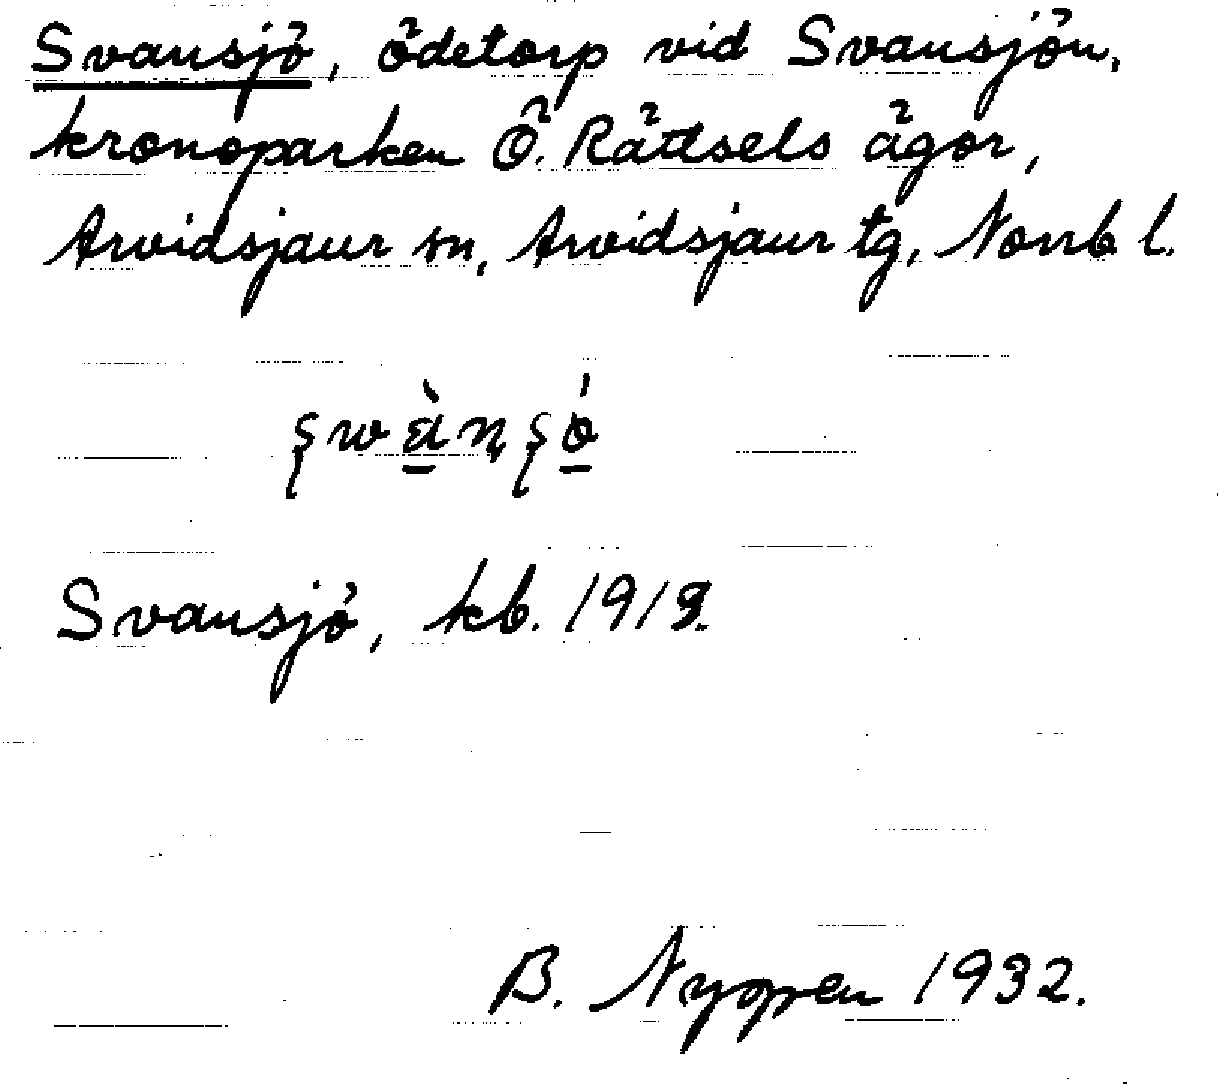 Svansjö, ödetorp vid Svansjön,
kronoparken Ö. Rättsels ägor,
Arvidsjaur sn, Arvidsjaur tg, Norrb l.
Svansjö, kb. 1913.
B. Nygren 1932.